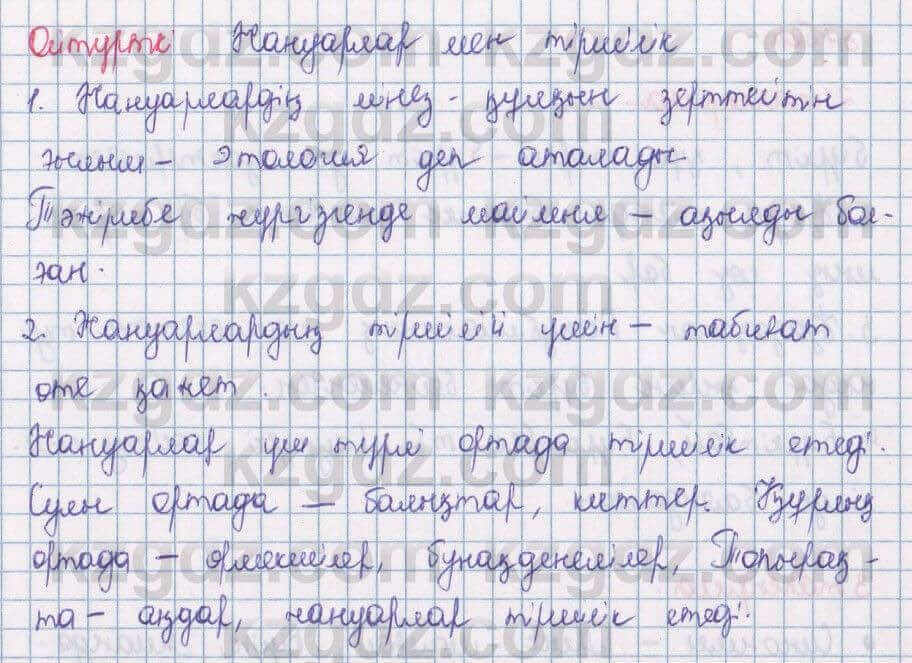 Ой түрткі Жануарлар мен тіршілік
1. Жануарлардің мінез - құлқын зерттейтін
ғылым - этология деп аталады
Тәжірибе жүргізгенде маймыл - ақылды бол-
ған.
2. Жануарлардың тіршілігі үшін - табиғат
өте қажет.
Жануарлар үш түрлі ортада тіршілік етеді.
Сулы ортада - балықтар, киттер. Құрлық
ортада - өрмекшілер, бунақденелілер, Топырақ -
та - аңдар, жануарлар тіршілік етеді.
kzgdz.com